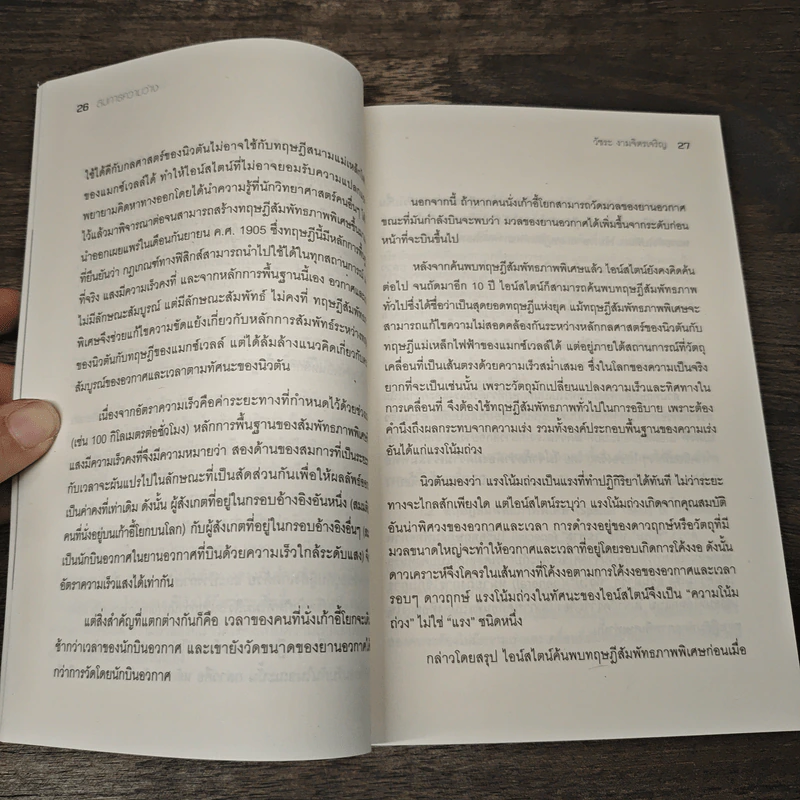 26
ใช้ได้ดีกับกลศาสตร์ของนิวตันไม่อาจใช้กับทฤษฎีสนามแม่เหล็ก
ของแมกซ์เวลล์ได้ ทำให้ไอน์สไตน์ที่ไม่อาจยอมรับความแปลก
พยายามคิดหาทางออกโดยได้นำความรู้ที่นักวิทยาศาสตร์คนอื่นๆ
ไว้แล้วมาพิจารณาต่อจนสามารถสร้างทฤษฎีสัมพัทธภาพพิเศษขึ้น
นำออกเผยแพร่ในเดือนกันยายน ค.ศ. 1905 ซึ่งทฤษฎีนี้มีหลักการพื้น
ที่ยืนยันว่า กฎเกณฑ์ทางฟิสิกส์สามารถนำไปใช้ได้ในทุกสถานการณ์
ที่จริง แสงมีความเร็วคงที่ และจากหลักการพื้นฐานนี้เอง อวกาศและ
ไม่มีลักษณะสัมบูรณ์ แต่มีลักษณะสัมพัทธ์ ไม่คงที่ ทฤษฎีสัมพัทธ
พิเศษจึงช่วยแก้ไขความขัดแย้งเกี่ยวกับหลักการสัมพัทธ์ระหว่าง
ของนิวตันกับทฤษฎีของแมกซ์เวลล์ แต่ได้ล้มล้างแนวคิดเกี่ยวกับ
สัมบูรณ์ของอวกาศและเวลาตามทัศนะของนิวตัน
เนื่องจากอัตราความเร็วคือค่าระยะทางที่กำหนดไว้ด้วยช่วง
(เช่น 100 กิโลเมตรต่อชั่วโมง) หลักการพื้นฐานของสัมพัทธภาพพิเศษ
แสงมีความเร็วคงที่จึงมีความหมายว่า สองด้านของสมการที่เป็นระยะ
กับเวลาจะผันแปรไปในลักษณะที่เป็นสัดส่วนกันเพื่อให้ผลลัพธ์ออก
เป็นค่าคงที่เท่าเดิม ดังนั้น ผู้สังเกตที่อยู่ในกรอบอ้างอิงอันหนึ่ง
คนที่นั่งอยู่บนเก้าอี้โยกบนโลก) กับผู้สังเกตที่อยู่ในกรอบอ้างอิงอื่นๆ
เป็นนักบินอวกาศในยานอวกาศที่บินด้วยความเร็วใกล้ระดับแสง)
อัตราความเร็วแสงได้เท่ากัน
แต่สิ่งสำคัญที่แตกต่างกันก็คือ เวลาของคนที่นั่งเก้าอี้โยกจะ
ช้ากว่าเวลาของนักบินอวกาศ และเขายังวัดขนาดของยานอวกาศ
กว่าการวัดโดยนักบินอวกาศ
วัชระ งามจิตรเจริญ 27
นอกจากนี้ ถ้าหากคนนั่งเก้าอี้โยกสามารถวัดมวลของยานอวกาศ
ขณะที่มันกำลังบินจะพบว่า มวลของยานอวกาศได้เพิ่มขึ้นจากระดับก่อน
หน้าที่จะบินขึ้นไป
หลังจากค้นพบทฤษฎีสัมพัทธภาพพิเศษแล้ว ไอน์สไตน์ยังคงคิดค้น
ต่อไป จนถัดมาอีก 10 ปี ไอน์สไตน์ก็สามารถค้นพบทฤษฎีสัมพัทธภาพ
ทั่วไปซึ่งได้ชื่อว่าเป็นสุดยอดทฤษฎีแห่งยุค แม้ทฤษฎีสัมพัทธภาพพิเศษจะ
สามารถแก้ไขความไม่สอดคล้องกันระหว่างหลักกลศาสตร์ของนิวตันกับ
ทฤษฎีแม่เหล็กไฟฟ้าของแมกซ์เวลล์ได้ แต่อยู่ภายใต้สถานการณ์ที่วัตถุ
เคลื่อนที่เป็นเส้นตรงด้วยความเร็วสม่ำเสมอ ซึ่งในโลกของความเป็นจริง
ยากที่จะเป็นเช่นนั้น เพราะวัตถุมักเปลี่ยนแปลงความเร็วและทิศทางใน
การเคลื่อนที่ จึงต้องใช้ทฤษฎีสัมพัทธภาพทั่วไปในการอธิบาย เพราะต้อง
คำนึงถึงผลกระทบจากความเร่ง รวมทั้งองค์ประกอบพื้นฐานของความเร่ง
อันได้แก่แรงโน้มถ่วง
นิวตันมองว่า แรงโน้มถ่วงเป็นแรงที่ทำปฏิกิริยาได้ทันที ไม่ว่าระยะ
ทางจะไกลสักเพียงใด แต่ไอน์สไตน์ระบุว่า แรงโน้มถ่วงเกิดจากคุณสมบัติ
อันน่าพิศวงของอวกาศและเวลา การดำรงอยู่ของดาวฤกษ์หรือวัตถุที่มี
มวลขนาดใหญ่จะทำให้อวกาศและเวลาที่อยู่โดยรอบเกิดการโค้งงอ ดังนั้น
ดาวเคราะห์จึงโคจรในเส้นทางที่โค้งงอตามการโค้งงอของอวกาศและเวลา
รอบๆ ดาวฤกษ์ แรงโน้มถ่วงในทัศนะของไอน์สไตน์จึงเป็น “ความโน้ม
ถ่วง” ไม่ใช่ “แรง” ชนิดหนึ่ง
กล่าวโดยสรุป ไอน์สไตน์ค้นพบทฤษฎีสัมพัทธภาพพิเศษก่อนเมื่อ